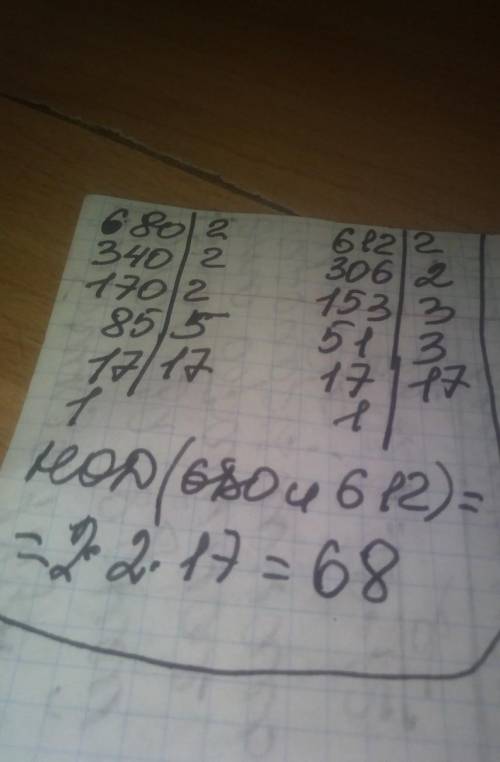 680 | 2 612 | 2
340 | 2 306 | 2
170 | 2 153 | 3
85 | 5 51 | 3
17 | 17 17 | 17
1 1
НОД(680 и 612)=
=2·2·17=68